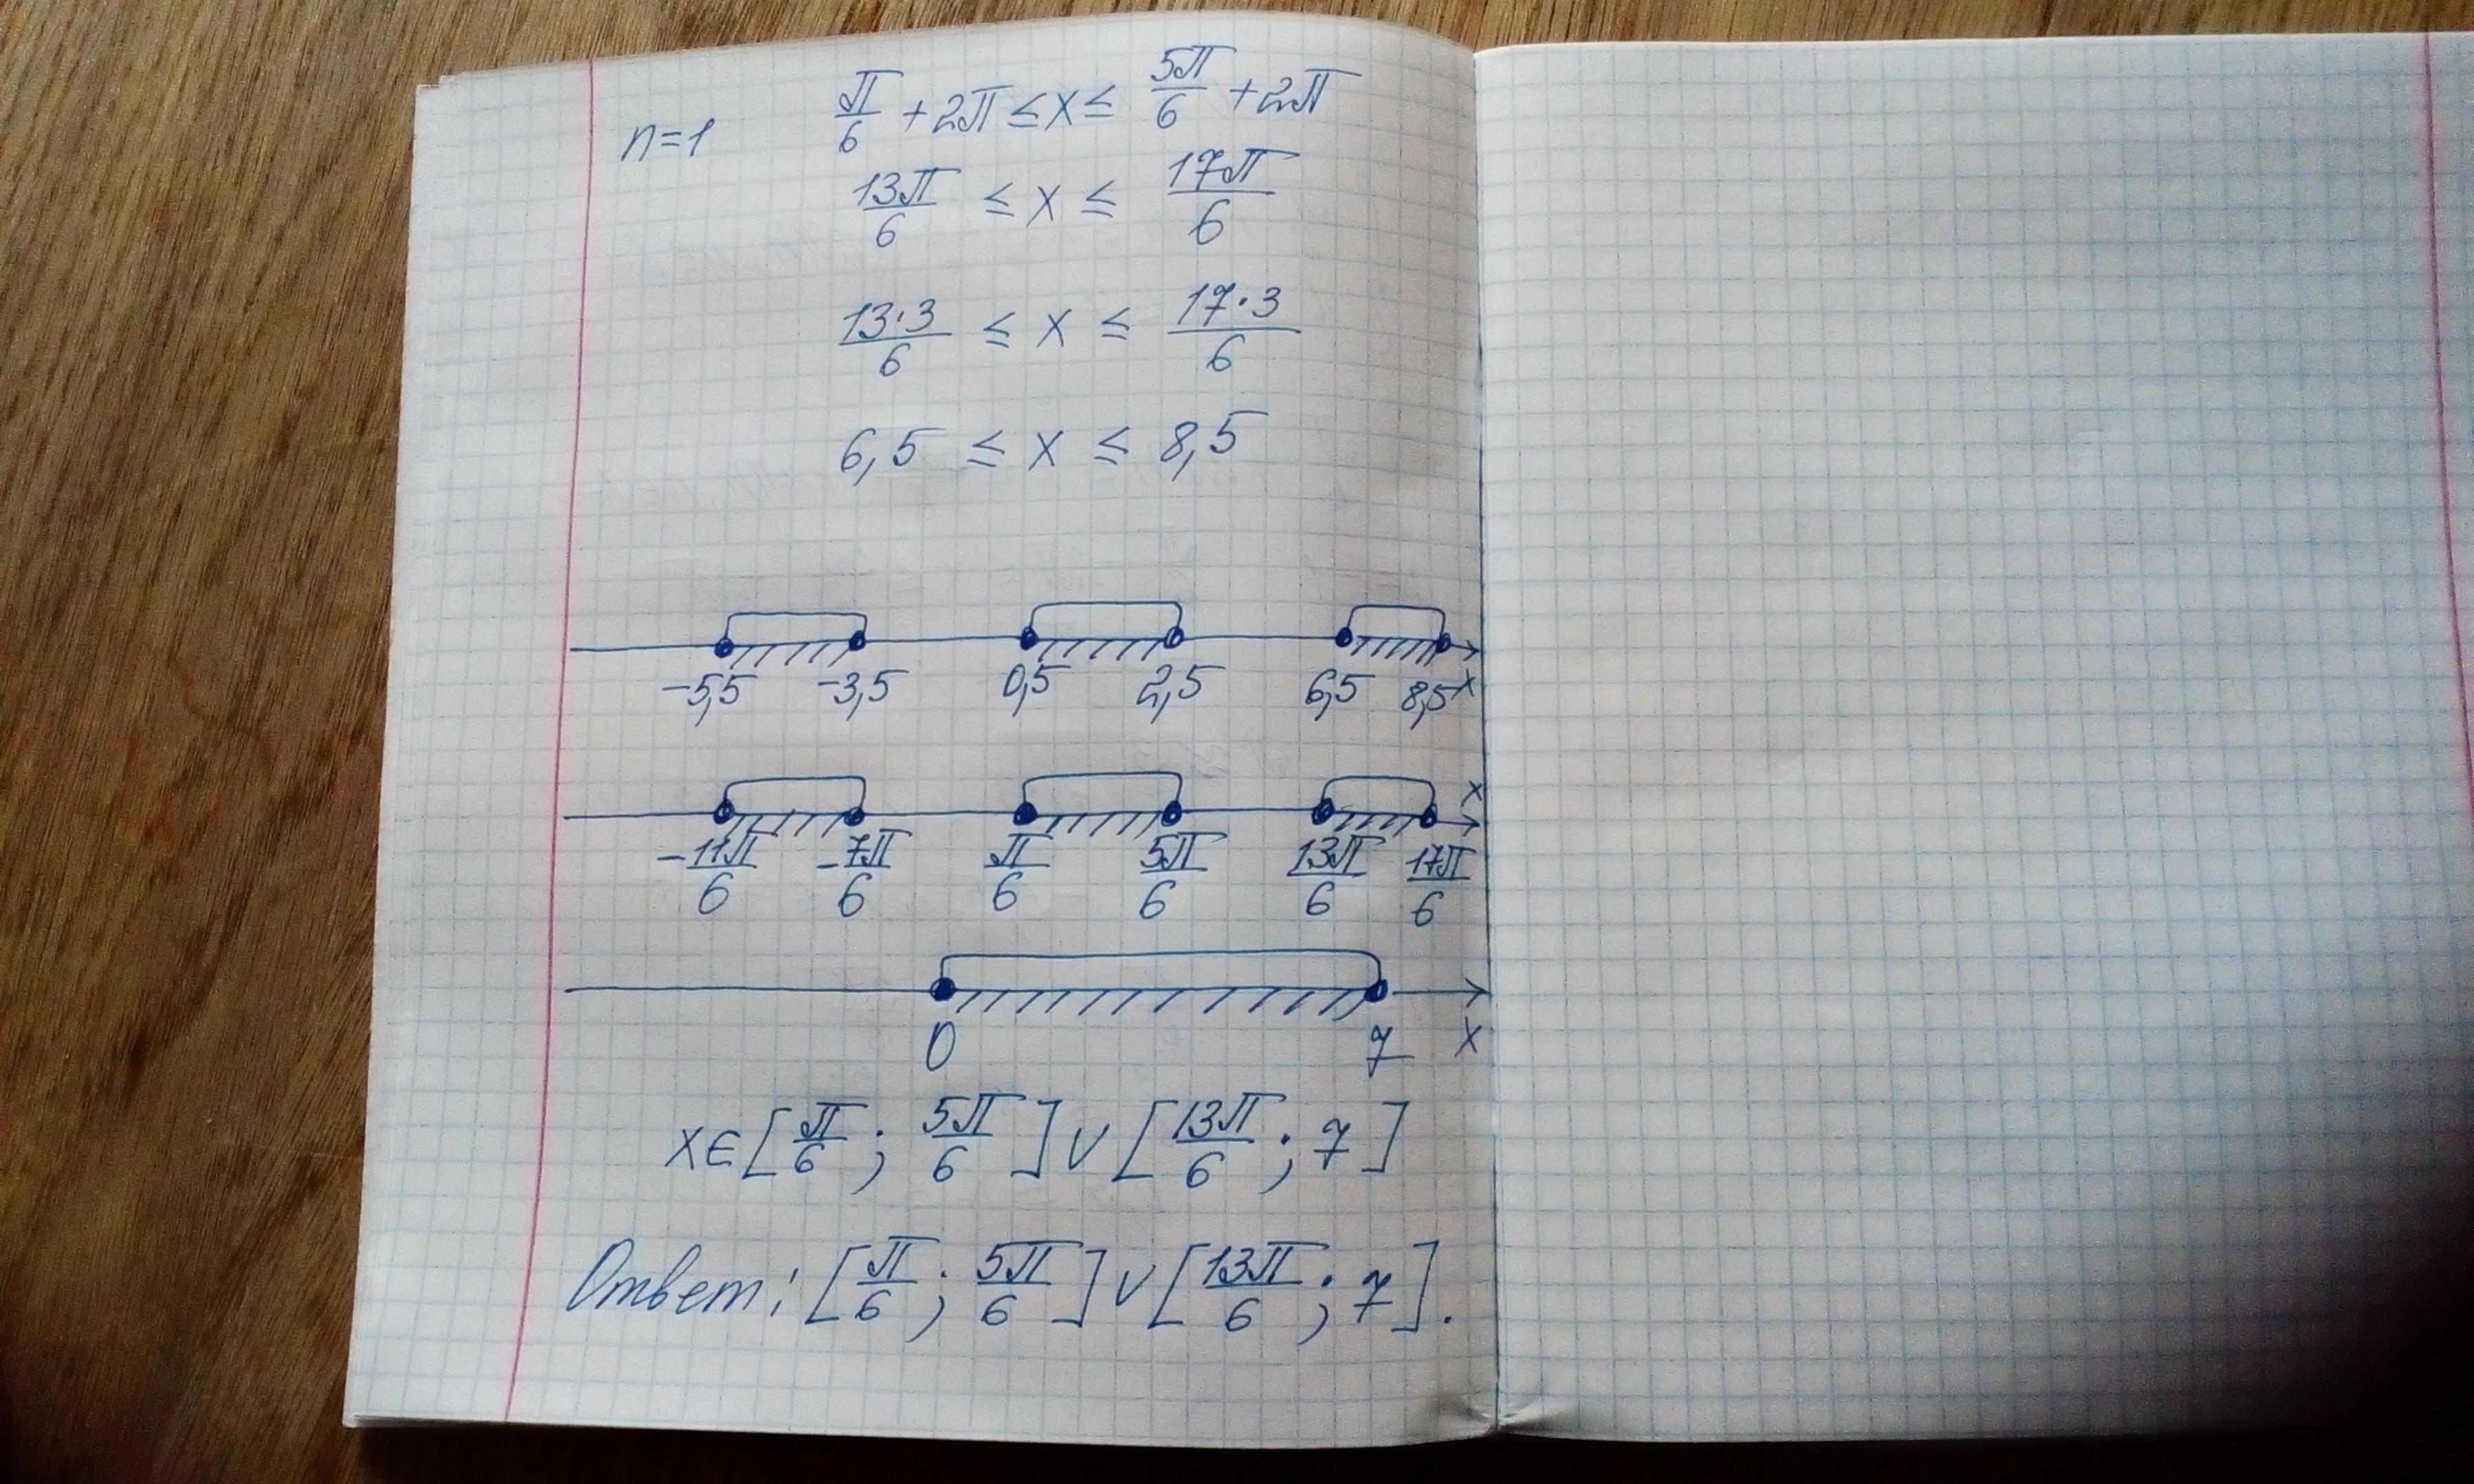 n=1 π/6 + 2π ≤ x ≤ 5π/6 + 2π
13π/6 ≤ x ≤ 17π/6
13·3/6 ≤ x ≤ 17·3/6
6,5 ≤ x ≤ 8,5
-5,5 -3,5 0,5 2,5 6,5 8,5 x
x
-11π/6 -7π/6 π/6 5π/6 13π/6 17π/6
0 7 x
x∈[π/6; 5π/6]∪[13π/6; 7]
Ответ: [π/6; 5π/6]∪[13π/6; 7].